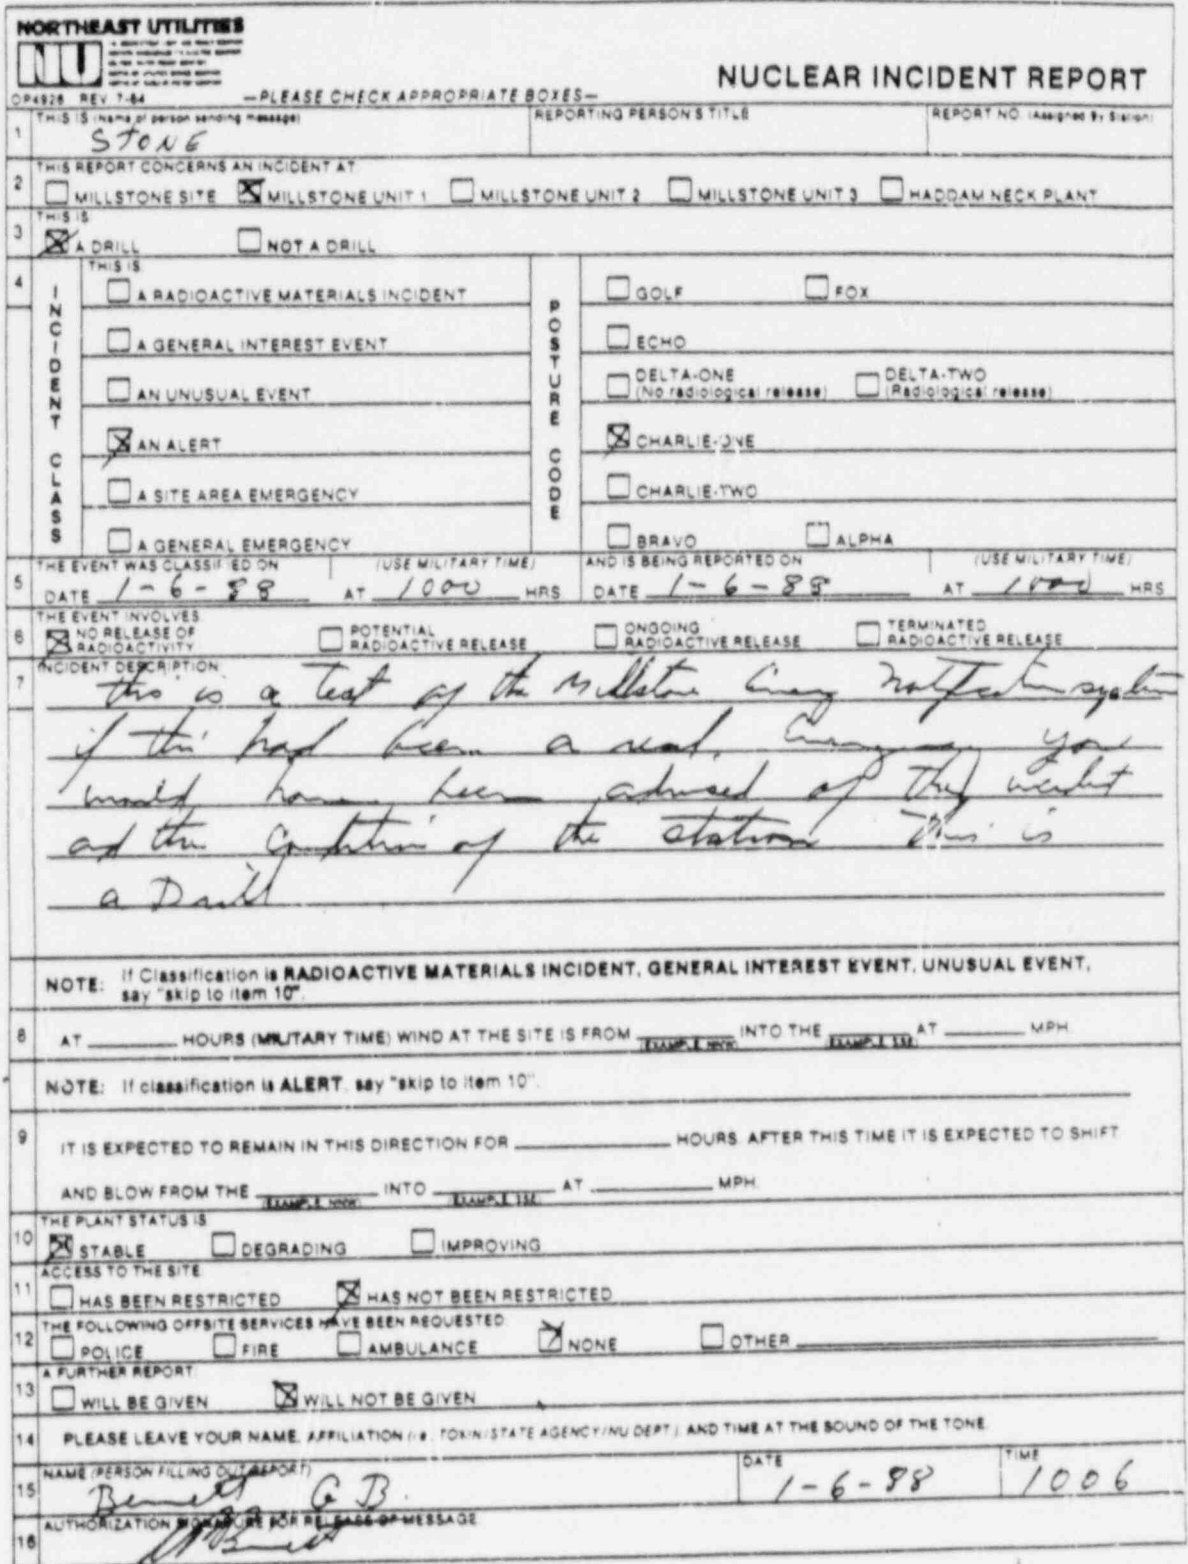 NORTHEAST UTILITIES
NU
OP4926 REV. 7-84
—PLEASE CHECK APPROPRIATE BOXES—
NUCLEAR INCIDENT REPORT
1 THIS IS (Name of person sending message) REPORTING PERSON'S TITLE REPORT NO. (Assigned By Station)
STONE
2 THIS REPORT CONCERNS AN INCIDENT AT
MILLSTONE SITE MILLSTONE UNIT 1 MILLSTONE UNIT 2 MILLSTONE UNIT 3 HADDAM NECK PLANT
3 THIS IS
A DRILL NOT A DRILL
4 INCIDENT CLASS THIS IS
A RADIOACTIVE MATERIALS INCIDENT
A GENERAL INTEREST EVENT
AN UNUSUAL EVENT
AN ALERT
A SITE AREA EMERGENCY
A GENERAL EMERGENCY
POSTURE CODE
GOLF FOX
ECHO
DELTA-ONE (No radiological release) DELTA-TWO (Radiological release)
CHARLIE-ONE
CHARLIE-TWO
BRAVO ALPHA
5 THE EVENT WAS CLASSIFIED ON (USE MILITARY TIME) AND IS BEING REPORTED ON (USE MILITARY TIME)
DATE 1-6-88 AT 1000 HRS DATE 1-6-88 AT 1000 HRS
6 THE EVENT INVOLVES
NO RELEASE OF RADIOACTIVITY POTENTIAL RADIOACTIVE RELEASE ONGOING RADIOACTIVE RELEASE TERMINATED RADIOACTIVE RELEASE
7 INCIDENT DESCRIPTION
this is a test of the Millstone Notification system
if this had been a real, Emergency you
would have been advised of the
and the Condition of the station This is
a Drill
NOTE: If Classification is RADIOACTIVE MATERIALS INCIDENT, GENERAL INTEREST EVENT, UNUSUAL EVENT,
say "skip to item 10".
8 AT HOURS (MILITARY TIME) WIND AT THE SITE IS FROM (EXAMPLE NNW) INTO THE (EXAMPLE SSE) AT MPH.
NOTE: If classification is ALERT, say "skip to item 10".
9 IT IS EXPECTED TO REMAIN IN THIS DIRECTION FOR HOURS. AFTER THIS TIME IT IS EXPECTED TO SHIFT
AND BLOW FROM THE (EXAMPLE NNW) INTO (EXAMPLE SSE) AT MPH.
10 THE PLANT STATUS IS
STABLE DEGRADING IMPROVING
11 ACCESS TO THE SITE
HAS BEEN RESTRICTED HAS NOT BEEN RESTRICTED
12 THE FOLLOWING OFFSITE SERVICES HAVE BEEN REQUESTED
POLICE FIRE AMBULANCE NONE OTHER
13 A FURTHER REPORT
WILL BE GIVEN WILL NOT BE GIVEN
14 PLEASE LEAVE YOUR NAME, AFFILIATION (i.e., TOWN/STATE AGENCY/NU DEPT.), AND TIME AT THE SOUND OF THE TONE.
15 NAME (PERSON FILLING OUT REPORT) DATE TIME
Bennett G B. 1-6-88 1006
16 AUTHORIZATION SIGNATURE FOR RELEASE OF MESSAGE